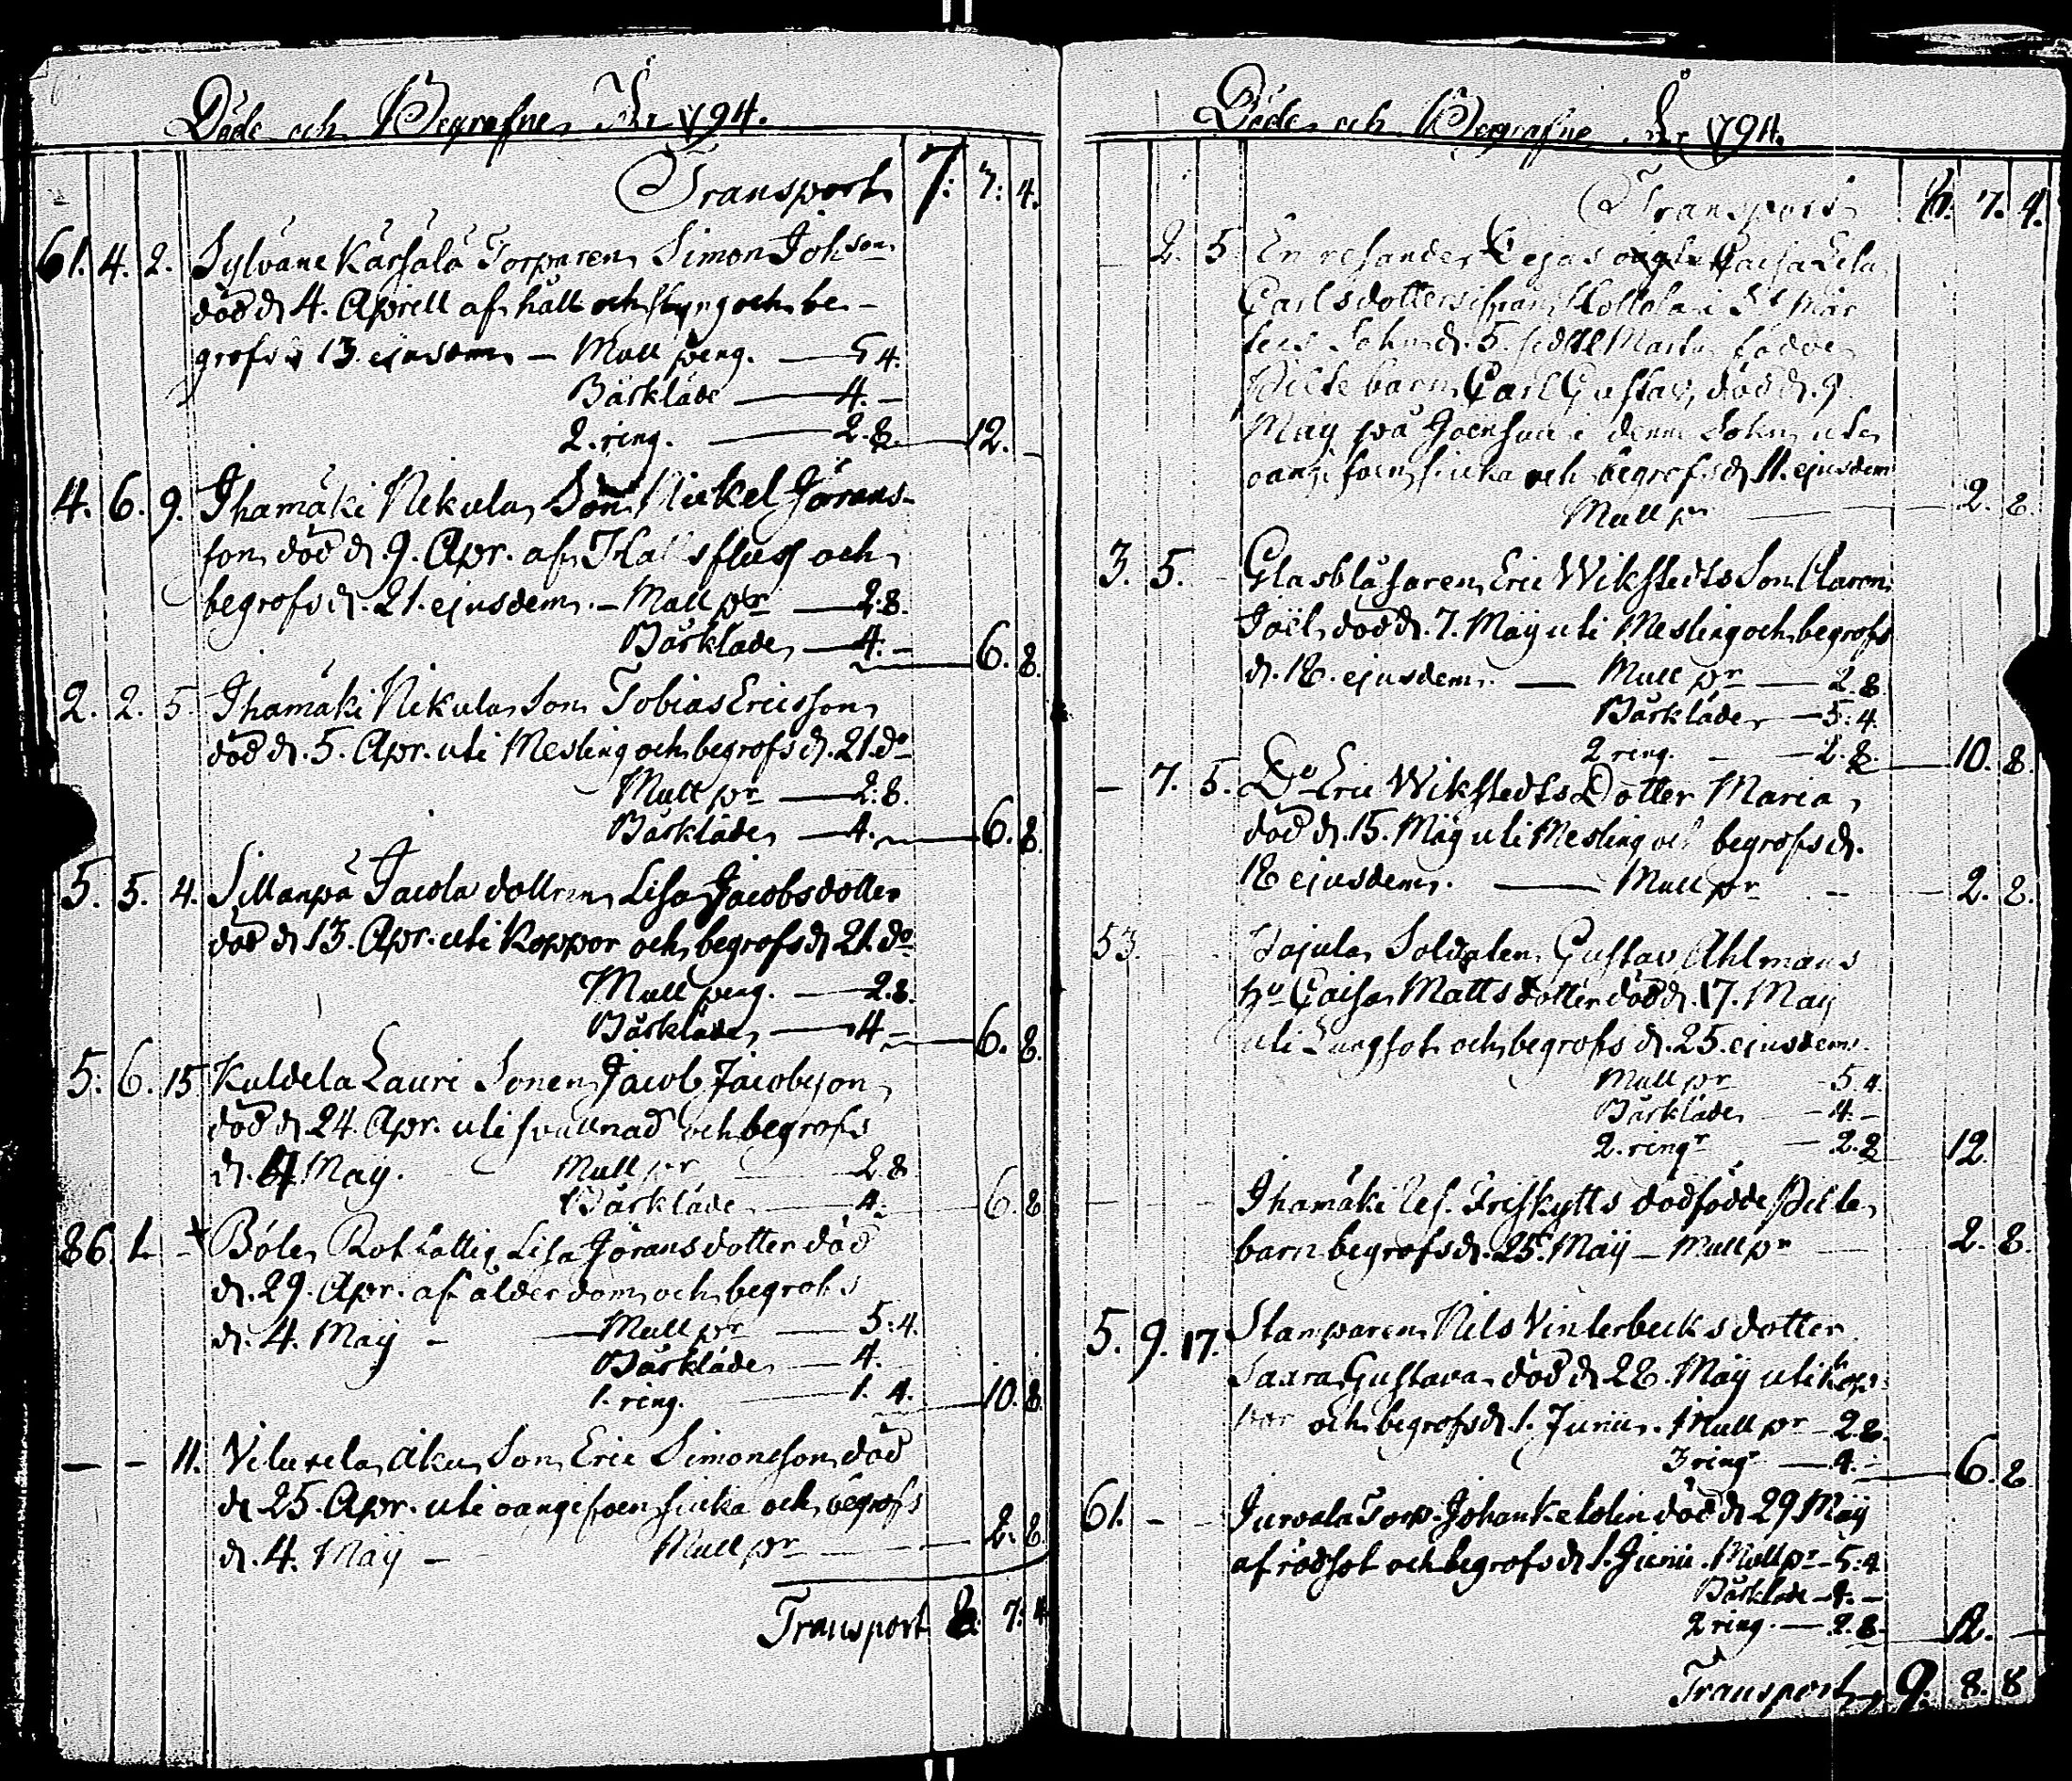 Döde och Begrafne År 1794.
Transport 7: 7: 4.
61. 4. 2. Sylväne Kärsälä Torparen Simon Johsson
död d 4. Aprill af håll och styng och be-
grofs d 13. ejusdem — Mull peng. — 5 4.
Bårkläde — 4. —
2. ring. — 2. 8. — 12. —
4. 6. 9. Ihamäki Nikula Son Mickel Jörans-
son död d. 9. Apr. af Halsfluss och
begrofs d. 21. ejusdem. — Mull pr — 2. 8.
Bårkläde — 4. — 6. 8.
2. 2. 5. Ihamäki Nikula Son Tobias Ericsson
död d. 5. Apr. uti Mesling och begrofs d. 21. do
Mull pr — 2. 8.
Bårkläde — 4. — 6. 8.
5. 5. 4. Sillanpä Jacola dottren Lisa Jacobsdotter
död d 13. Apr. uti Koppor och begrofs d 21. do
Mull peng. — 2. 8.
Bårkläde — 4 — 6. 8.
5. 6. 15. Kuldela Lauri Sonen Jacob Jacobsson
död d 24. Apr. uti svullnad och begrofs
d. 4 May. Mull pr — 2 8
Bårkläde — 4. — 6. 8
86 1. — Böle Rot hattig Lisa Jöransdotter död
d. 29. Apr. af ålderdom och begrofs
d. 4. Maÿ — Mull pr — 5. 4.
Bårkläde — 4.
1. ring. — 1. 4. — 10. 8.
— — 11. Son Eric Simonsson död
d 25. Apr. uti oangifven siuka och begrofs
d. 4. Maÿ — Mull pr — 2. 8.
Transport 8. 7. 4
Döde och Begrafne År 1794.
Transport 8. 7. 4.
— 2. 5. En resande Caisa
Carlsdotters ifrån Hollola i St Mår
tens Sokn d. 5. födde
Pilte barn Carl Gustav, död d. 9.
May på i denne Sokn uti
oangifven siuka och begrofs d. 11. ejusdem
Mull pr — 2. 8.
3. 5. — Glasblåsaren Eric Wikstedts Son Claron
Joël död d. 7. Maÿ uti Mesling och begrofs
d. 18. ejusdem. — Mull pr — 2. 8.
Bårkläde — 5. 4.
2 ring. — 2. 8. — 10. 8.
— 7. 5. Do Eric Wikstedts Dotter Maria
död d. 15. Maÿ uti Mesling och begrofs d.
18 ejusdem. — Mull pr — 2. 8.
53. Soldaten Gustav Ahlmans
hu Caisa Mattsdotter död d. 17. Maÿ
uti Lungsot och begrofs d. 25. ejusdem.
Mull pr — 5 4.
Bårkläde — 4. —
2. ringr — 2. 8 12
— — Ihamäki Friskytts dödfödde Pilte
barn begrofs d. 25. Maÿ — Mull pr — 2. 8.
5. 9. 17. Stamparen Nils Vinterbecks dotter
Saara Gustava död d 28. Maÿ uti Kop-
por och begrofs d 1. Junii. Mull pr — 2. 8.
3 ringr — 4. — 6. 8
61. — — Jurvala Torp. Johan Kelolin död d 29 Maÿ
af rödsot och begrofs d 1. Junii. Mull pr — 5. 4
Bårkläde — 4. —
2 ring. — 2. 8. — 12. —
Transport 9. 8. 8